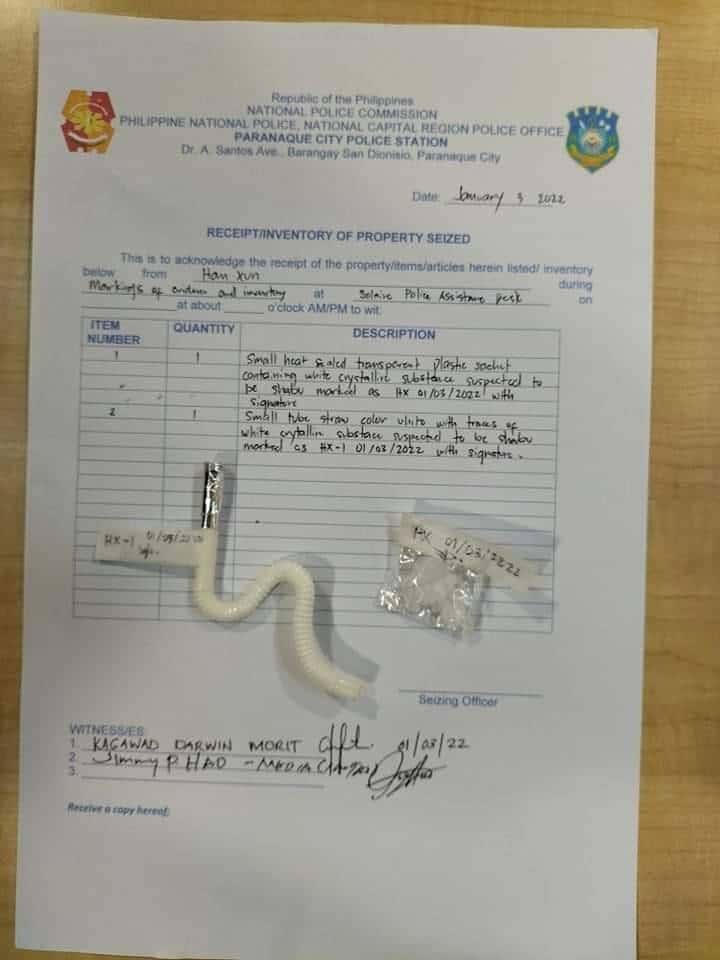 Republic of the Philippines
NATIONAL POLICE COMMISSION
PHILIPPINE NATIONAL POLICE, NATIONAL CAPITAL REGION POLICE OFFICE
PARANAQUE CITY POLICE STATION
Dr. A. Santos Ave., Barangay San Dionisio, Paranaque City
Date: January 3 2022
RECEIPT/INVENTORY OF PROPERTY SEIZED
This is to acknowledge the receipt of the property/items/articles herein listed/ inventory
below from Han Xun during
Markings of evidence and inventory at Solaire Police Assistance Desk on
at about o'clock AM/PM to wit:
ITEM NUMBER QUANTITY DESCRIPTION
1 1 Small heat sealed transparent plastic sachet
containing white crystalline substance suspected to
be shabu marked as HX 01/03/2022 with
signature
2 1 Small tube straw color white with traces of
white crytallin substace suspected to be shabu
marked as HX-1 01/03/2022 with signature.
HX-1 01/03/2022
HX 01/03/2022
Seizing Officer
WITNESS/ES:
1. KAGAWAD DARWIN MORIT 01/03/22
2. Jimmy P. HAO - MEDIA
3.
Receive a copy hereof: